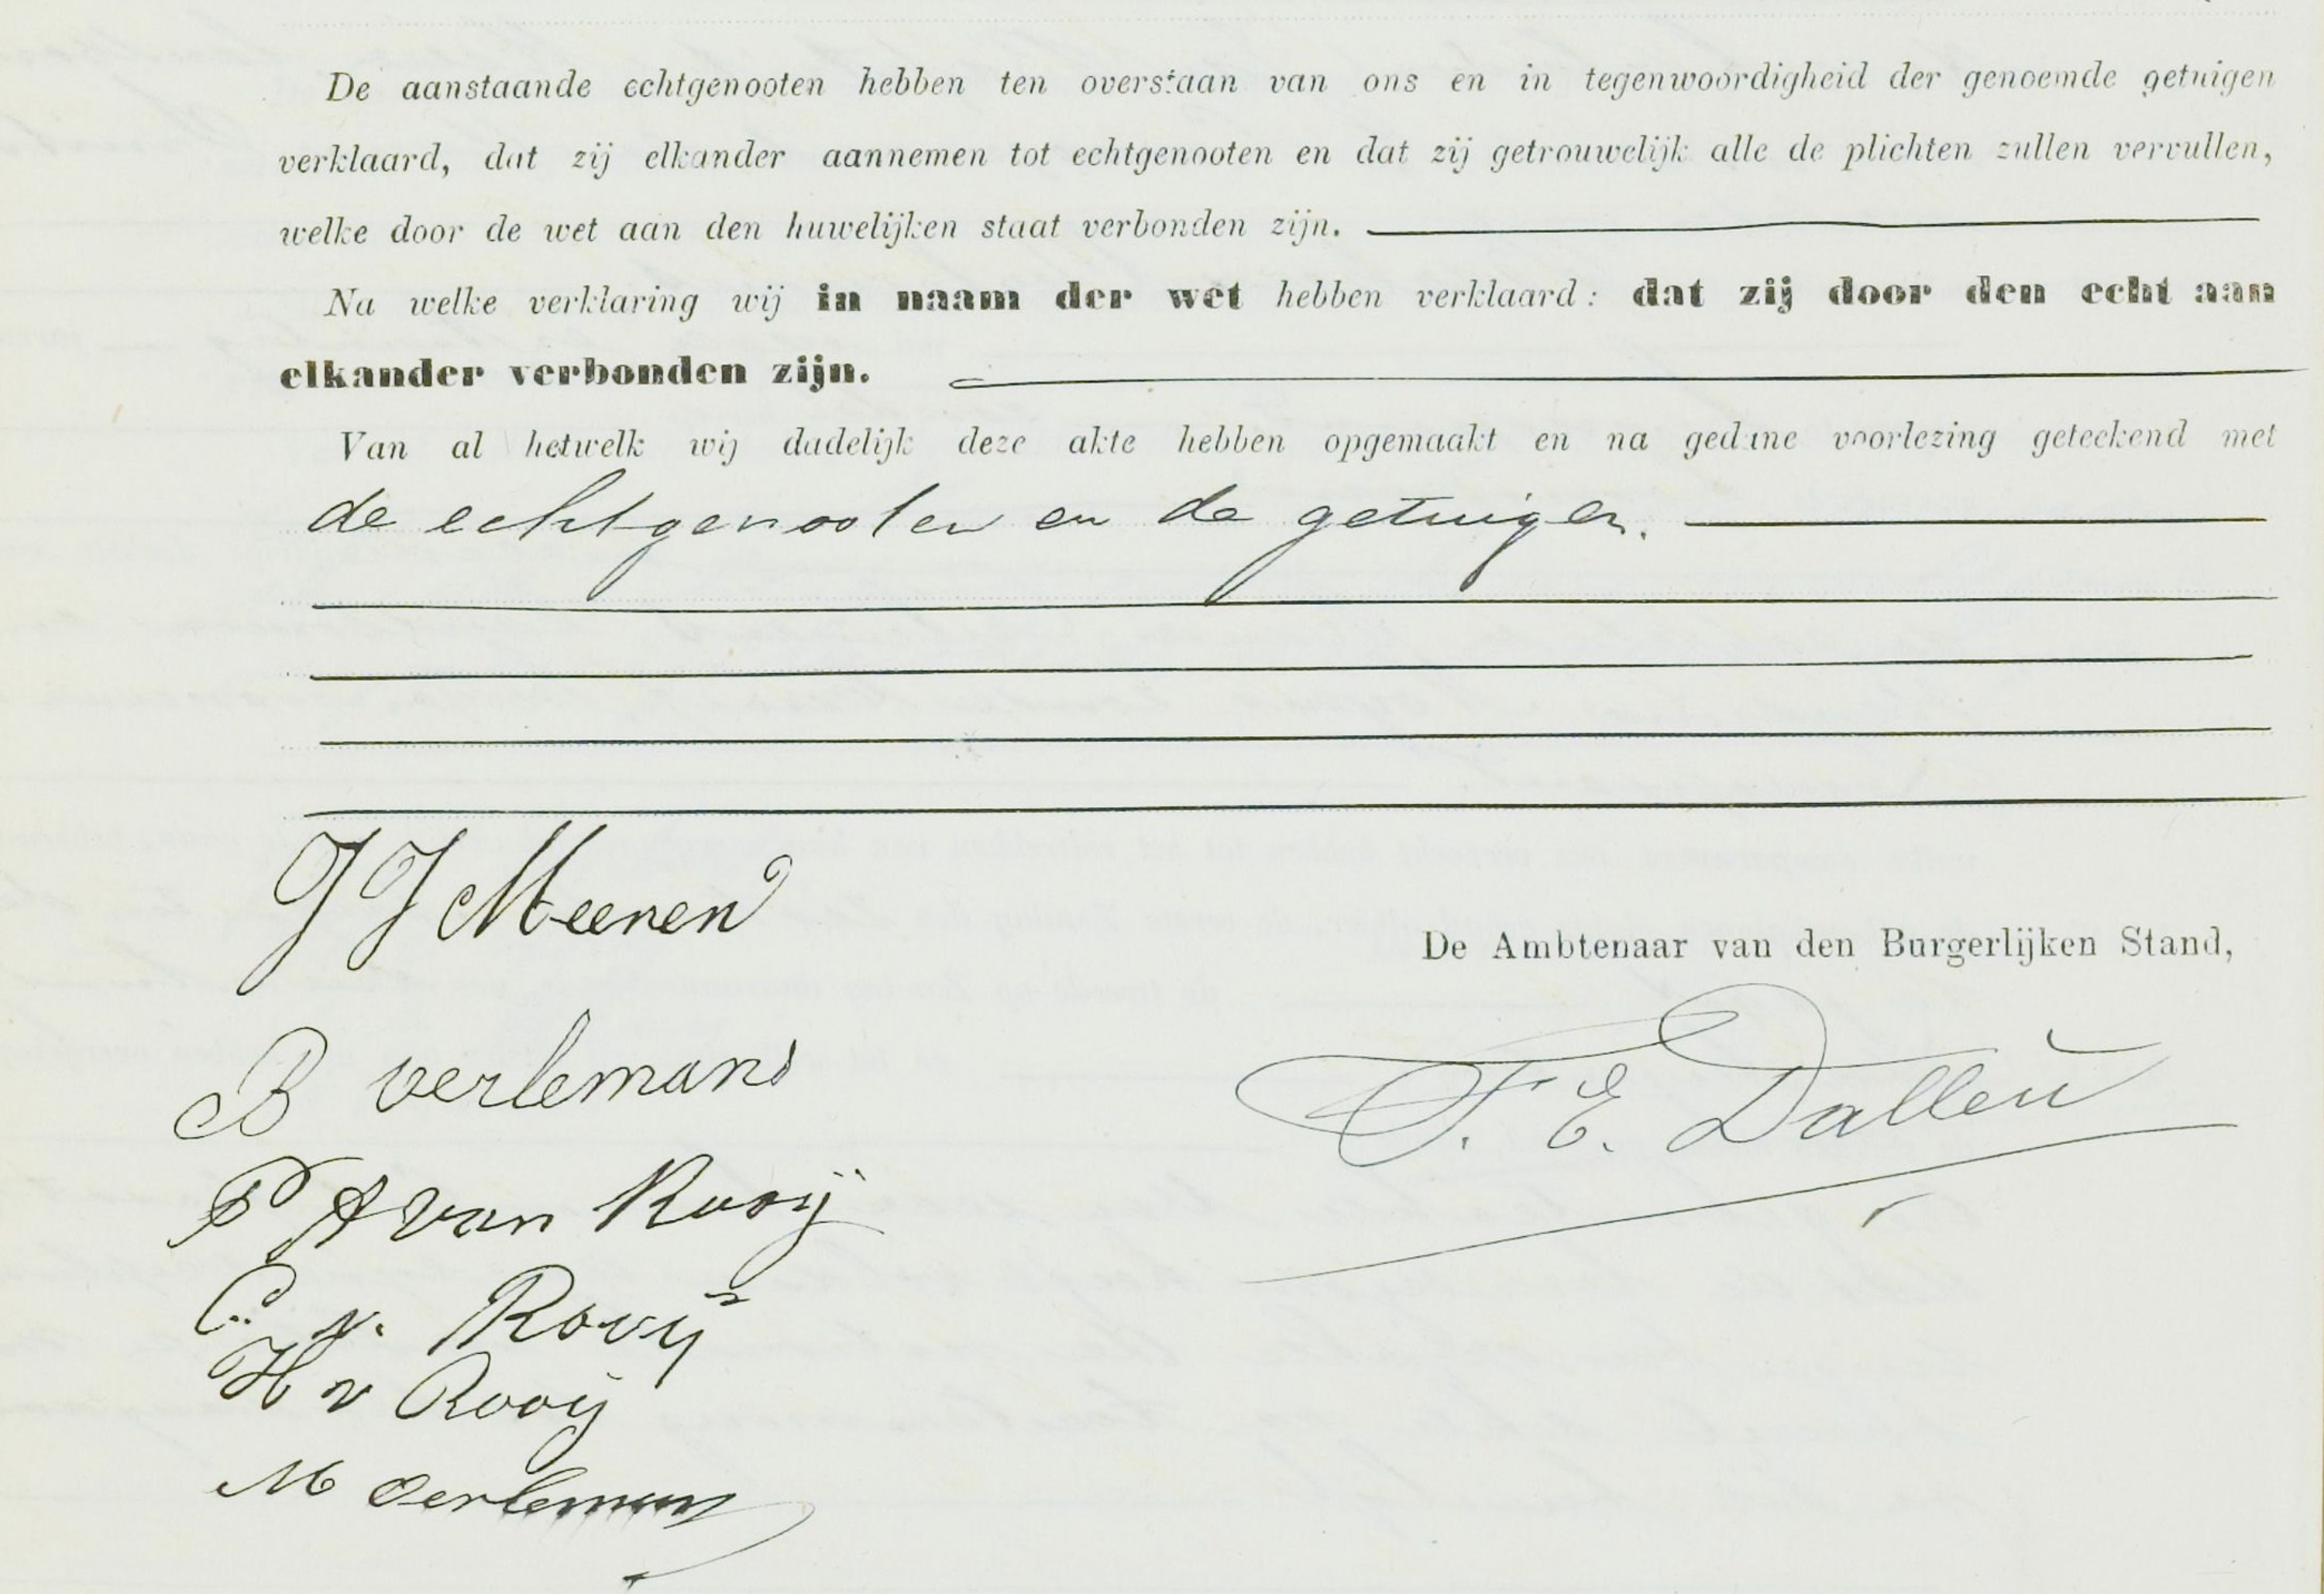 De aanstaande echtgenooten hebben ten overstaan van ons en in tegenwoordigheid der genoemde getuigen
verklaard, dat zij elkander aannemen tot echtgenooten en dat zij getrouwelijk alle de plichten zullen vervullen,
welke door de wet aan den huwelijken staat verbonden zijn.
Na welke verklaring wij in naam der wet hebben verklaard: dat zij door den echt aan
elkander verbonden zijn.
Van al hetwelk wij dadelijk deze akte hebben opgemaakt en na gedane voorlezing geteekend met
de echtgenooten en de getuigen.
J J Meeren
De Ambtenaar van den Burgerlijken Stand,
B oerlemans
F. E. Dalleu
P A van Rooij
C. v. Rooij
H v Rooij
M Oerlemans